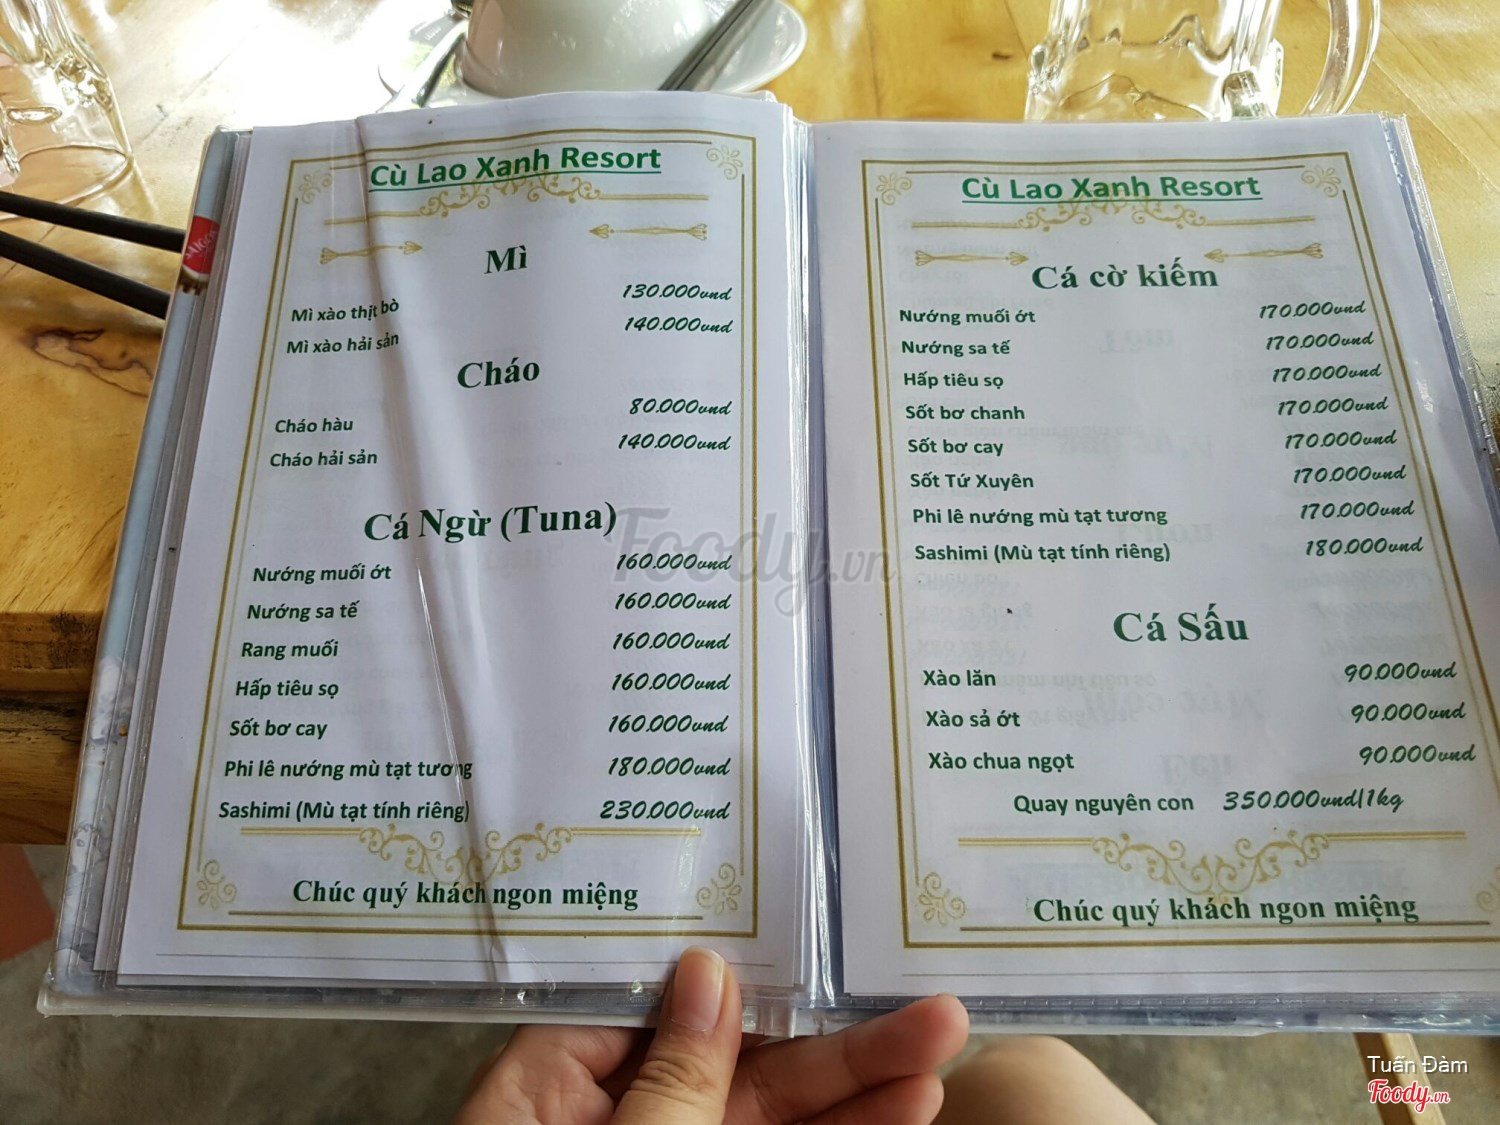 Cù Lao Xanh Resort
Mì
Mì xào thịt bò 130.000vnd
Mì xào hải sản 140.000vnd
Cháo
Cháo hàu 80.000vnd
Cháo hải sản 140.000vnd
Cá Ngừ (Tuna)
Nướng muối ớt 160.000vnd
Nướng sa tế 160.000vnd
Rang muối 160.000vnd
Hấp tiêu sọ 160.000vnd
Sốt bơ cay 160.000vnd
Phi lê nướng mù tạt tương 180.000vnd
Sashimi (Mù tạt tính riêng) 230.000vnd
Chúc quý khách ngon miệng
Cù Lao Xanh Resort
Cá cờ kiếm
Nướng muối ớt 170.000vnd
Nướng sa tế 170.000vnd
Hấp tiêu sọ 170.000vnd
Sốt bơ chanh 170.000vnd
Sốt bơ cay 170.000vnd
Sốt Tứ Xuyên 170.000vnd
Phi lê nướng mù tạt tương 170.000vnd
Sashimi (Mù tạt tính riêng) 180.000vnd
Cá Sấu
Xào lăn 90.000vnd
Xào sả ớt 90.000vnd
Xào chua ngọt 90.000vnd
Quay nguyên con 350.000vnd/1kg
Chúc quý khách ngon miệng
SAIGON
Foody.vn
Tuấn Đàm
Foody.vn